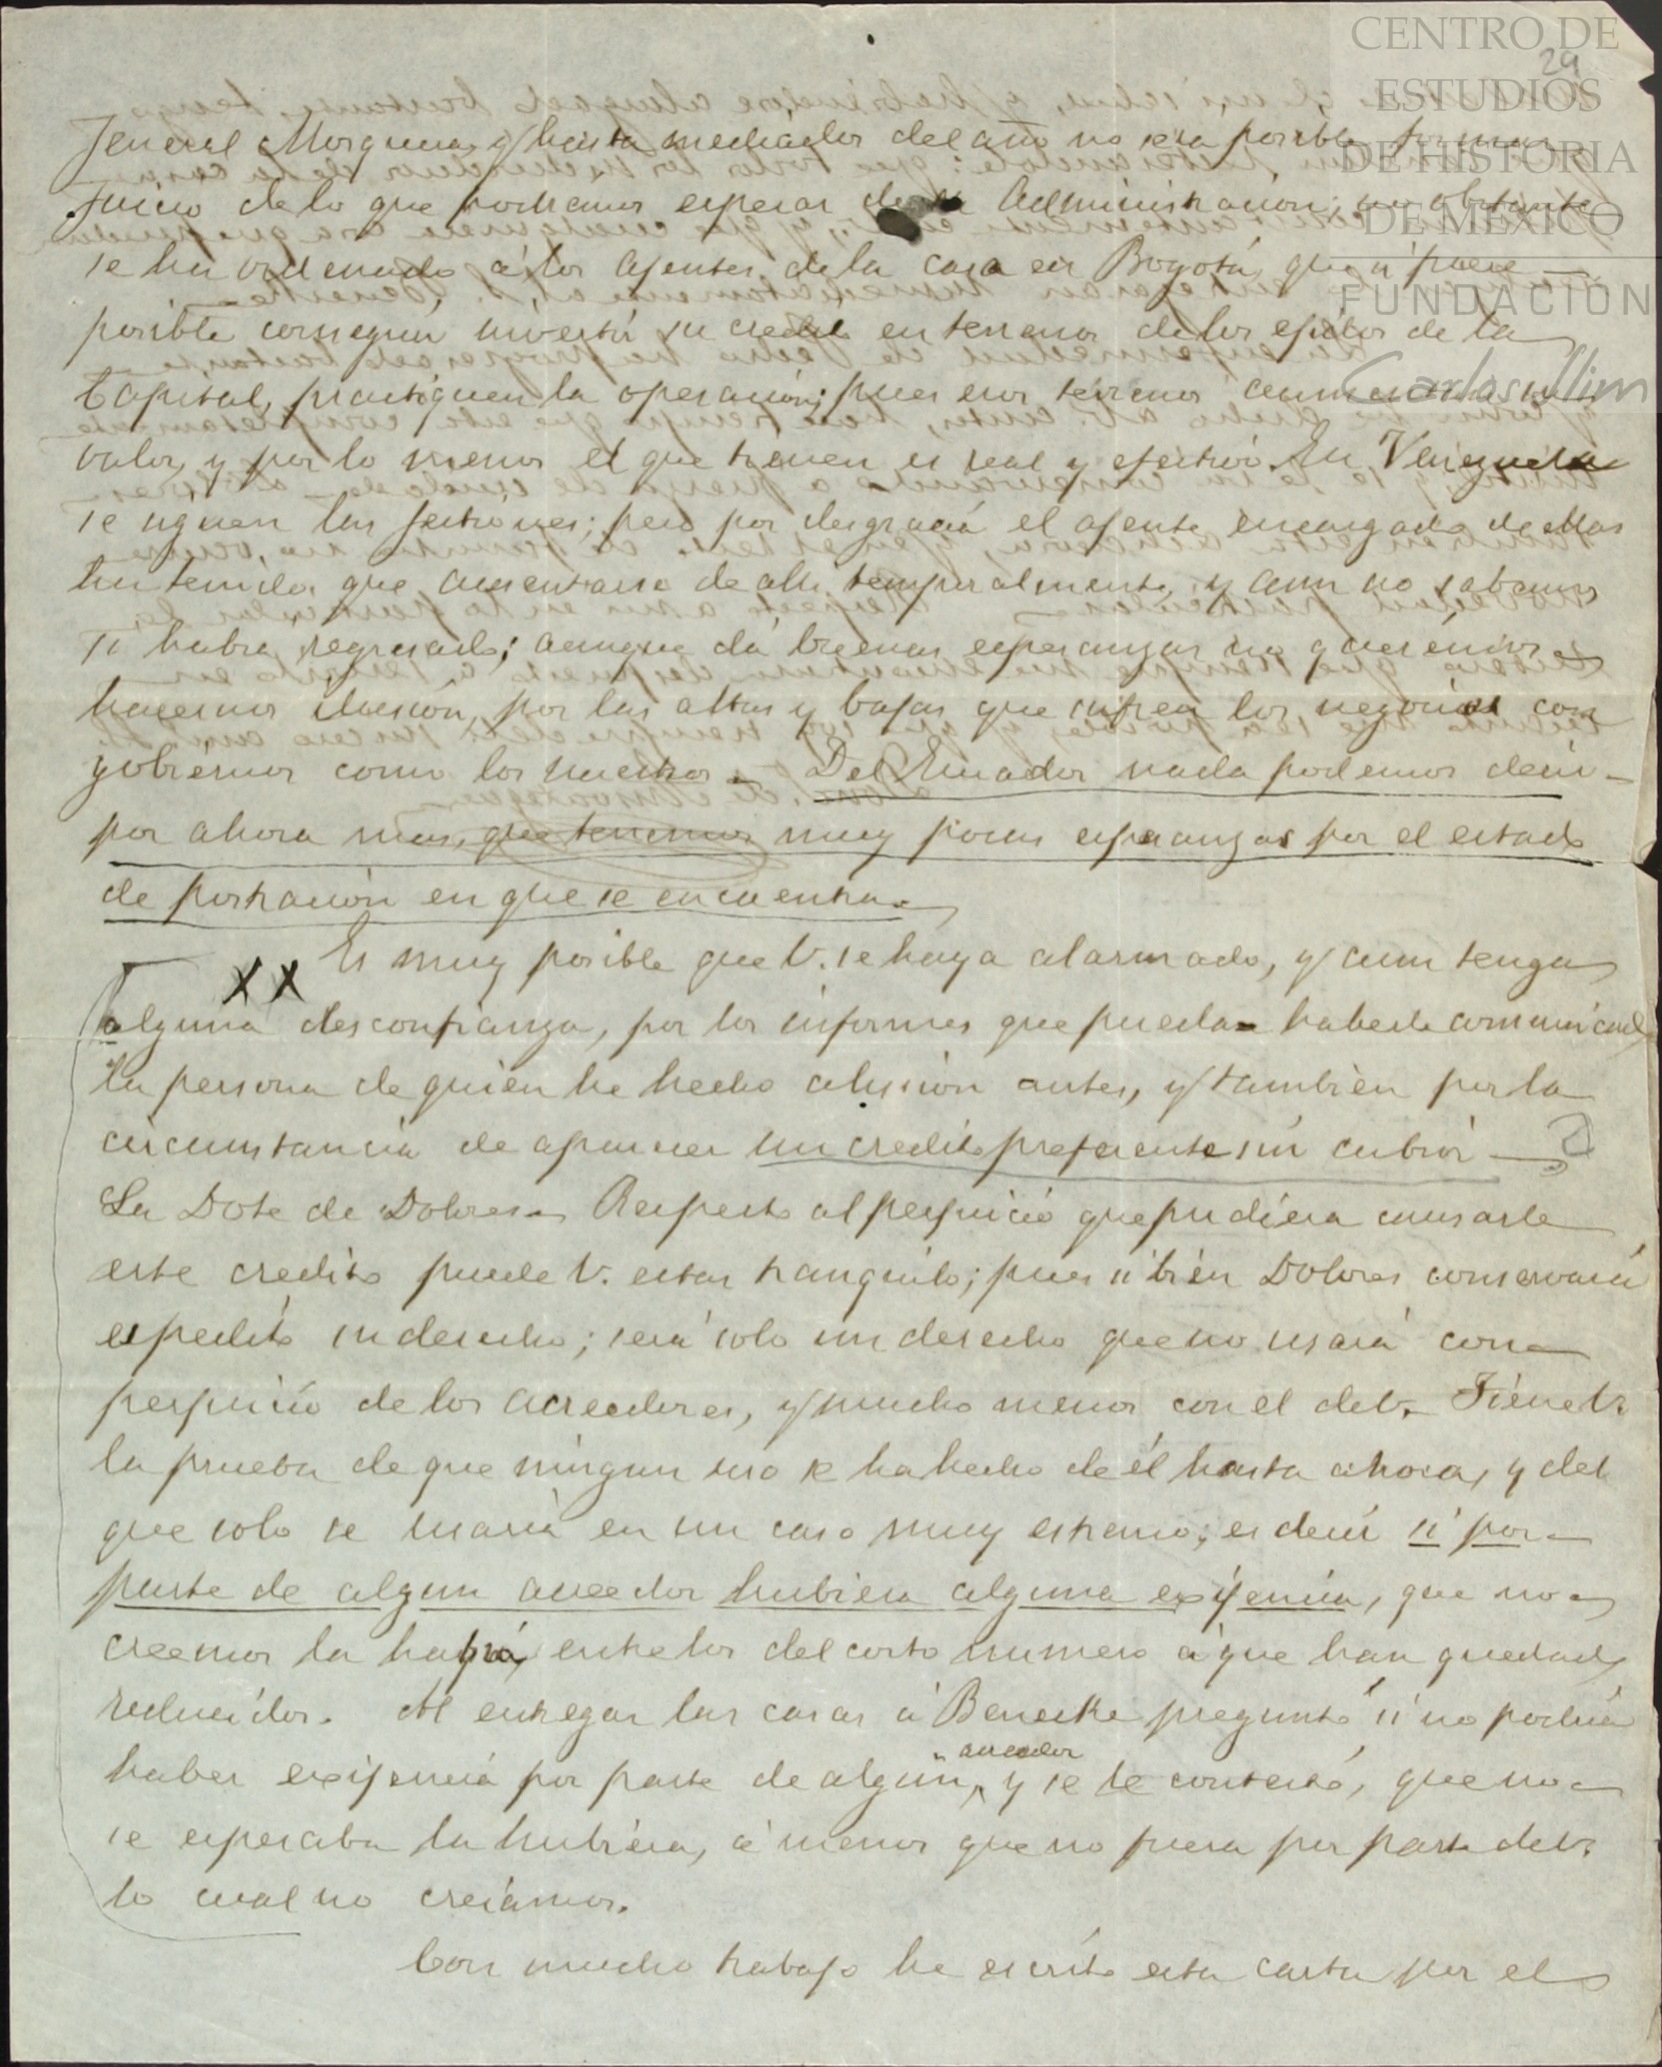 CENTRO DE
ESTUDIOS
DE HISTORIA
DE MEXICO
FUNDACIÓN
Carlos Slim
29
Jeneral Mosquera, y hasta mediados del año no sera posible formar
juicio de lo que podramos esperar de su Administracion; no obstante
se ha ordenado á los Ajentes de la casa en Bogotá, que si fuere
posible conseguir invertir su credito en terrenos de los ejidos de la
Capital, practiquen la operacion; pues esos terrenos aumentan su
valor, y por lo menos el que tienen es real y efectivo. En Venezuela
se siguen las jestiones; pero por desgracia el ajente encargado de ellas
ha tenido que ausentarse de alli temporalmente, y aun no sabemos
si habra regresado; aunque dá buenas esperanzas no queremos
hacernos ilusión, por las altas y bajas que sufren los negocios con
gobiernos como los nuestros. Del Ecuador nada podemos decir
por ahora mas, que tenemos muy pocas esperanzas por el estado
de postracion en que se encuentra.
XX Es muy posible que V. se haya alarmado, y aun tenga
alguna desconfianza, por los informes que pueda haberle comunicado
la persona de quien he hecho alusion antes, y tambien por la
circunstancia de aparecer un credito preferente sin cubrir
La Dote de Dolores. Respecto al perjuicio que pudiera causarle
este credito puede V. estar tranquilo; pues si bien Dolores conservará
espedito su derecho; será solo un derecho que no usará con
perjuicio de los acreedores, y mucho menos con el de V. Tiene V.
la prueba de que ningun uso se ha hecho de él hasta ahora, y del
que solo se usaria en un caso muy estremo; es decir si por
parte de algun acreedor hubiera alguna exijencia, que no
creemos la habrá, entre los del corto numero á que han quedado
reducidos. Al entregar las casas á Benecke preguntó si no podria
haber exijencia por parte de algun acreedor, y se le contestó, que no
se esperaba la hubiera, á menos que no fuera por parte de V.
lo cual no creiamos.
Con mucho trabajo he escrito esta carta por el